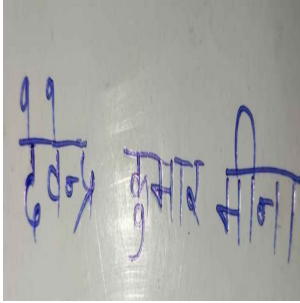 देवेन्द्र कुमार मीना